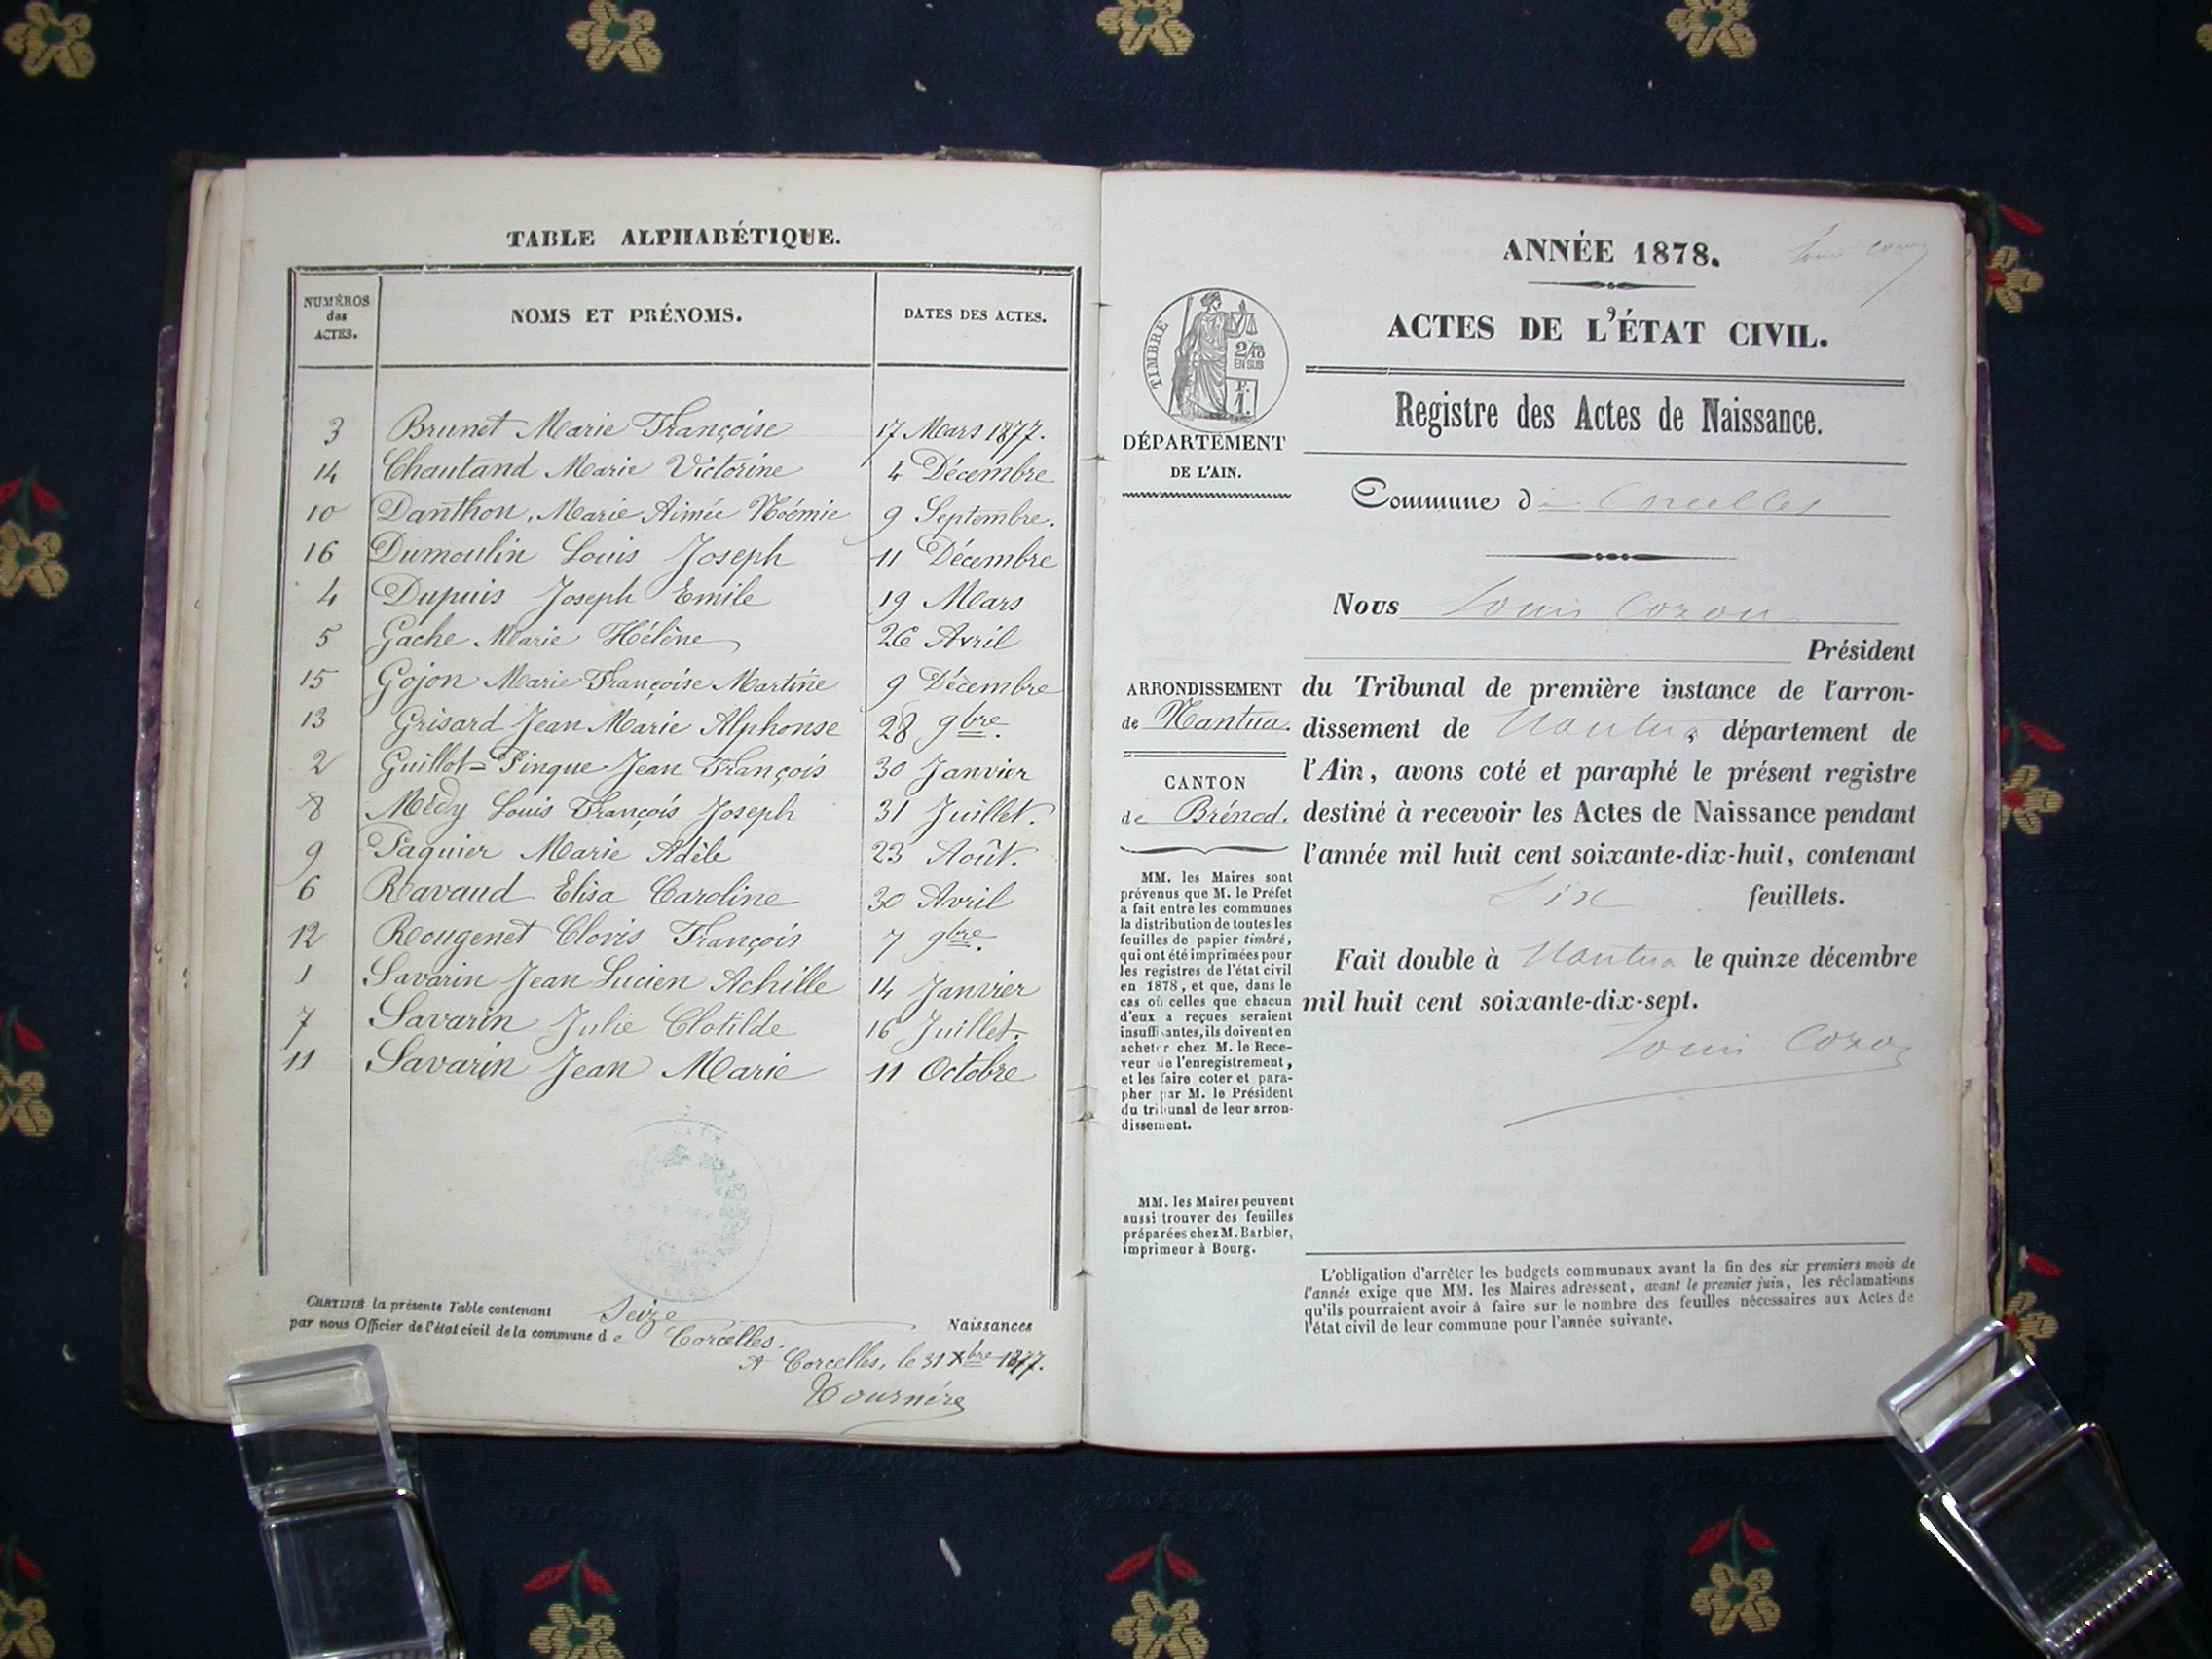 TABLE ALPHABÉTIQUE.
NUMÉROS des ACTES. NOMS ET PRÉNOMS. DATES DES ACTES.
3 Brunet Marie Françoise 17 Mars 1877.
14 Chautand Marie Victorine 4 Décembre
10 Danthon, Marie Aimée Noémie 9 Septembre.
16 Dumoulin Louis Joseph 11 Décembre
4 Dupuis Joseph Emile 19 Mars
5 Gache Marie Hélène 26 Avril
15 Gojon Marie Françoise Martine 9 Décembre
13 Grisard Jean Marie Alphonse 28 9bre.
2 Guillot-Pinque Jean François 30 Janvier
8 Médy Louis François Joseph 31 Juillet.
9 Paquier Marie Adèle 23 Août.
6 Ravaud Elisa Caroline 30 Avril
12 Rougenet Clovis François 7 9bre.
1 Savarin Jean Lucien Achille 14 Janvier
7 Savarin Julie Clotilde 16 Juillet.
11 Savarin Jean Marie 11 Octobre
CERTIFIÉ la présente Table contenant Seize Naissances
par nous Officier de l'état civil de la commune de Corcelles.
A Corcelles, le 31 Xbre 1877.
Tournire
Louis Cozon
ANNÉE 1878.
ACTES DE L'ÉTAT CIVIL.
Registre des Actes de Naissance.
Commune de Corcelles
Nous Louis Cozon
Président
du Tribunal de première instance de l'arron-
dissement de Nantua, département de
l'Ain, avons coté et paraphé le présent registre
destiné à recevoir les Actes de Naissance pendant
l'année mil huit cent soixante-dix-huit, contenant
Six feuillets.
Fait double à Nantua le quinze décembre
mil huit cent soixante-dix-sept.
Louis Cozon
TIMBRE
2/10
EN SUS
F.
1.
DÉPARTEMENT
DE L'AIN.
ARRONDISSEMENT
de Nantua.
CANTON
de Brénod.
MM. les Maires sont
prévenus que M. le Préfet
a fait entre les communes
la distribution de toutes les
feuilles de papier timbré,
qui ont été imprimées pour
les registres de l'état civil
en 1878, et que, dans le
cas où celles que chacun
d'eux a reçues seraient
insuffisantes, ils doivent en
acheter chez M. le Rece-
veur de l'enregistrement,
et les faire coter et para-
pher par M. le Président
du tribunal de leur arron-
dissement.
MM. les Maires peuvent
aussi trouver des feuilles
préparées chez M. Barbier,
imprimeur à Bourg.
L'obligation d'arrêter les budgets communaux avant la fin des six premiers mois de
l'année exige que MM. les Maires adressent, avant le premier juin, les réclamations
qu'ils pourraient avoir à faire sur le nombre des feuilles nécessaires aux Actes de
l'état civil de leur commune pour l'année suivante.